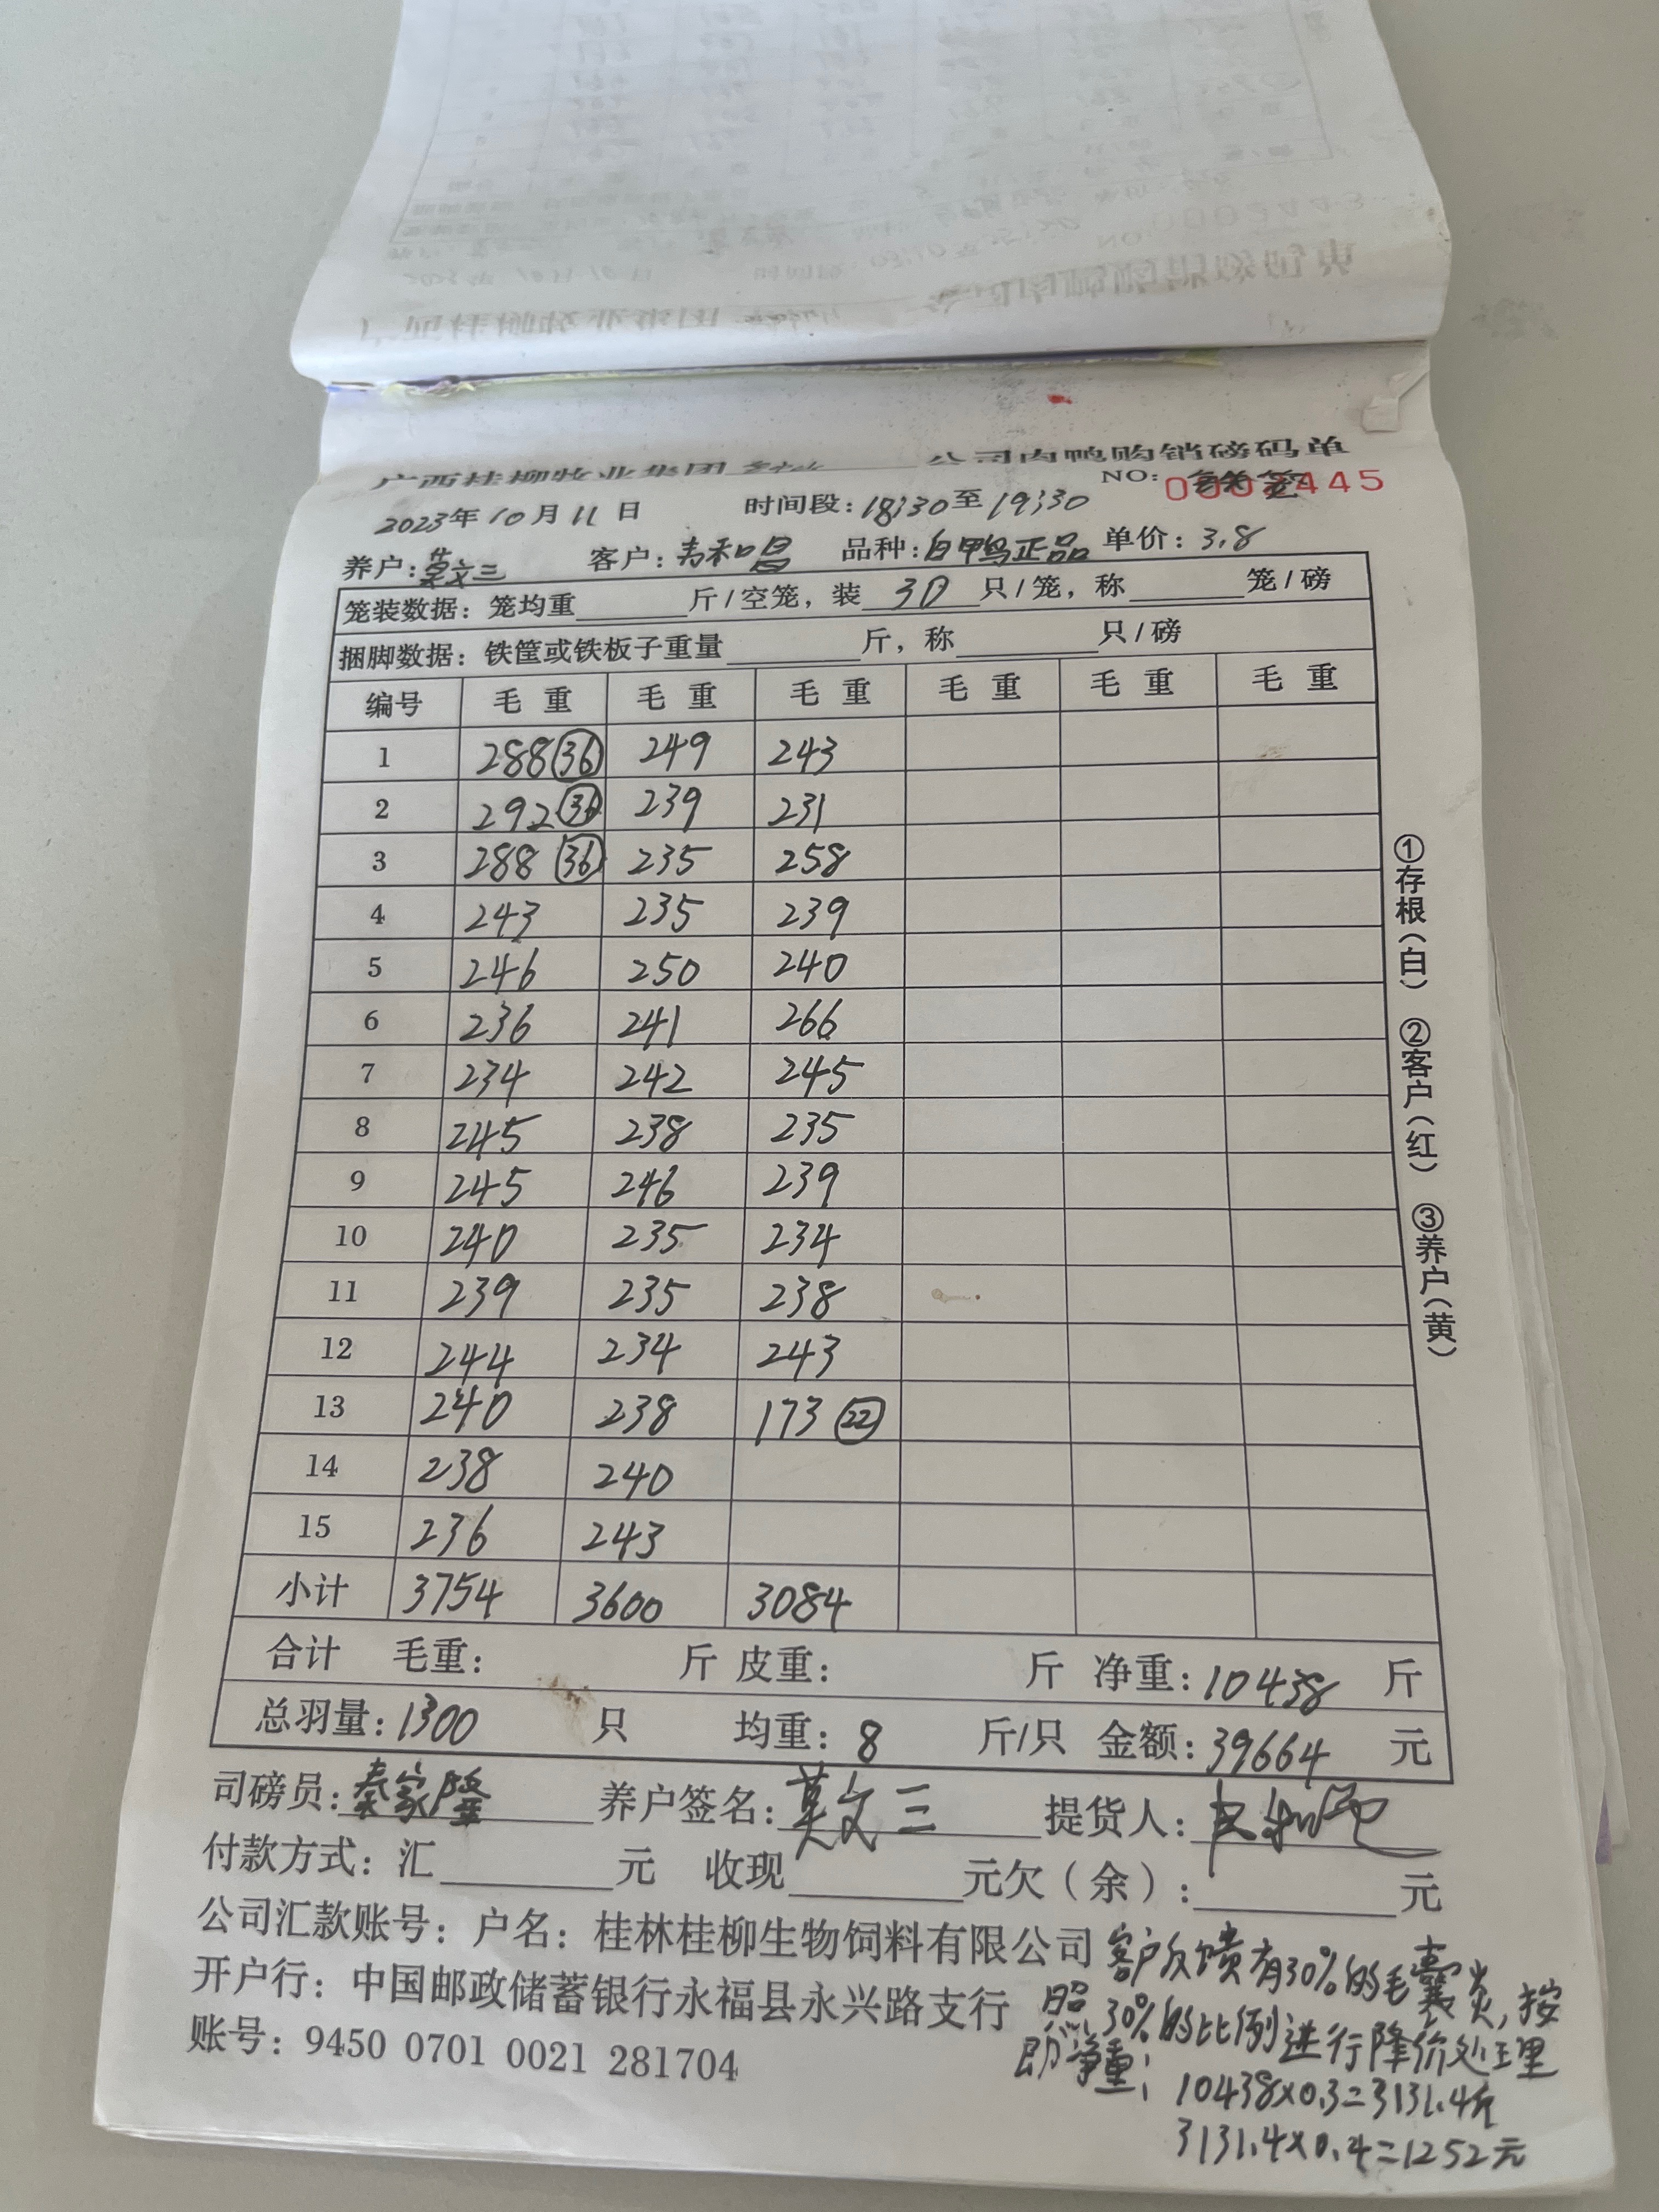 广西桂柳牧业集团 公司肉鸭购销磅码单
2023年10月11日 时间段:18:30至19:30 NO: 0002445
养户:莫文三 客户:韦和昌 品种:白鸭正品 单价:3.8
笼装数据:笼均重 斤/空笼,装 30 只/笼,称 笼/磅
捆脚数据:铁筐或铁板子重量 斤,称 只/磅
编号 毛重 毛重 毛重 毛重 毛重 毛重
1 288 (36) 249 243
2 292 (36) 239 231
3 288 (36) 235 258
4 243 235 239
5 246 250 240
6 236 241 266
7 234 242 245
8 245 238 235
9 245 246 239
10 240 235 234
11 239 235 238
12 244 234 243
13 240 238 173 (22)
14 238 240
15 236 243
小计 3754 3600 3084
合计 毛重: 斤 皮重: 斤 净重:10438 斤
总羽量:1300 只 均重:8 斤/只 金额:39664 元
①存根(白) ②客户(红) ③养户(黄)
司磅员:秦家隆 养户签名:莫文三 提货人:
付款方式:汇 元 收现 元欠(余): 元
公司汇款账号:户名:桂林桂柳生物饲料有限公司
开户行:中国邮政储蓄银行永福县永兴路支行
账号:9450 0701 0021 281704
客户反馈有30%的毛囊炎,按
照30%的比例进行降价处理
即净重:10438×0.3=3131.4斤
3131.4×0.4=1252元